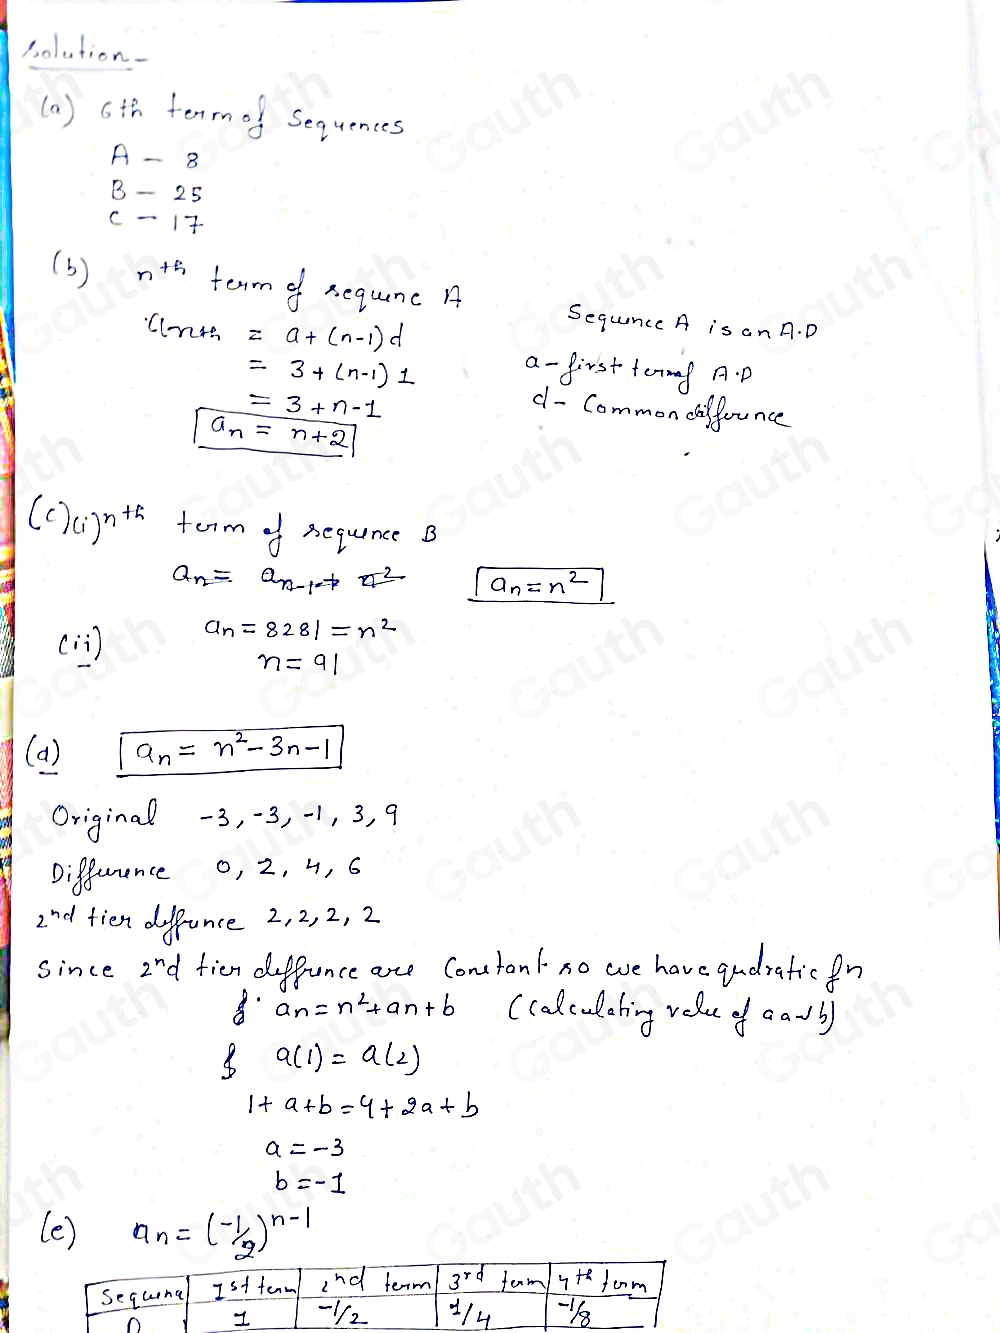 Solution -
(a) 6th term of Sequences
A - 8
B - 25
C - 17
(b) nth term of sequenc A
anth = a + (n-1)d
Sequence A is an A.P
= 3 + (n-1) 1
a - first term of A.P
= 3 + n - 1
d - Common difference
an = n+2
(c)(i) nth term of sequence B
an = an-1 + n²
an = n²
(ii) an = 8281 = n²
n = 91
(d) an = n² - 3n - 1
Original -3, -3, -1, 3, 9
Difference 0, 2, 4, 6
2nd tier diffrence 2, 2, 2, 2
Since 2nd tier diffrence are Constant so we have qudratic fn
an = n² + an + b (Calculating value of a and b)
a(1) = a(2)
1 + a + b = 4 + 2a + b
a = -3
b = -1
(e) an = (-1/2)^n-1
Sequence 1st term 2nd term 3rd term 4th term
D 1 -1/2 1/4 -1/8